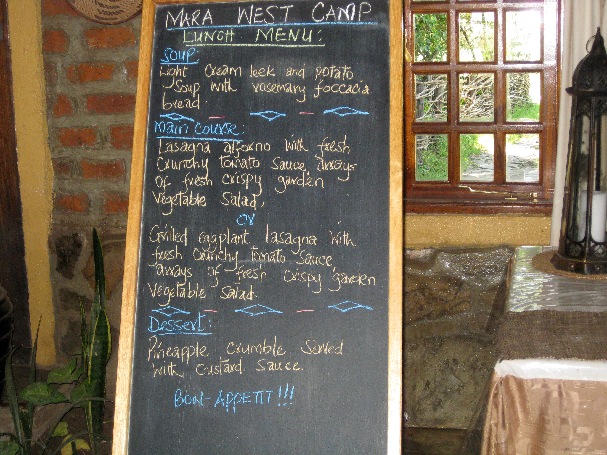 MARA WEST CAMP
LUNCH MENU:
SOUP:
Light Cream leek and potato
Soup with rosemary foccacia
bread.
Main Course:
Lasagna alforno with fresh
Crunchy tomato sauce, arrays
of fresh crispy garden
Vegetable Salad,
or
Grilled eggplant lasagna with
fresh crunchy tomato sauce
arrays of fresh crispy garden
Vegetable Salad.
Dessert:
Pineapple Crumble Served
with Custard Sauce.
BON-APPETIT!!!